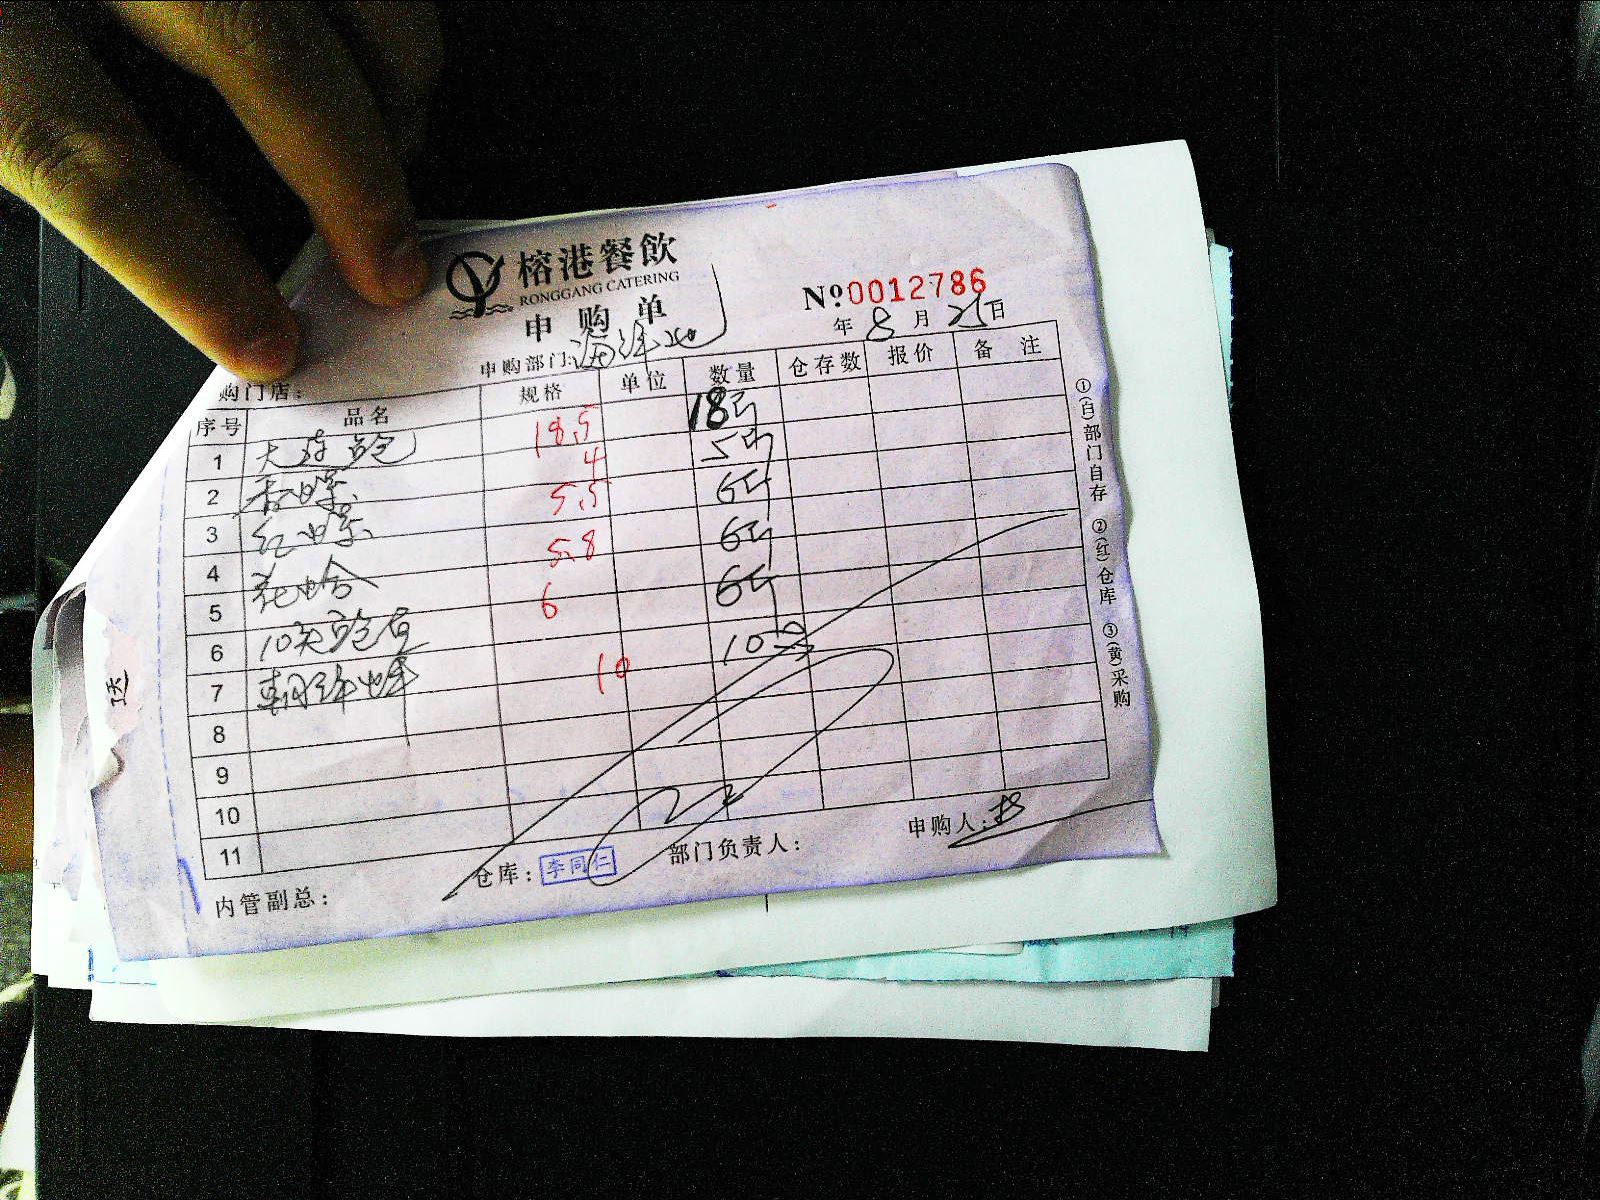 榕港餐飲
RONGGANG CATERING
申购单
№0012786
年 8 月 25 日
购门店: 申购部门: 海鲜池
序号 品名 规格 单位 数量 仓存数 报价 备注
1 大连鲍 18.5 18斤
2 香螺 4 5斤
3 红螺 5.5 6斤
4 花蛤 5.8 6斤
5 6 6斤
6 10头鲍 10
7 10
8
9
10
11
内管副总: 仓库: 李同仁 部门负责人: 申购人:
①(白)部门自存 ②(红)仓库 ③(黄)采购